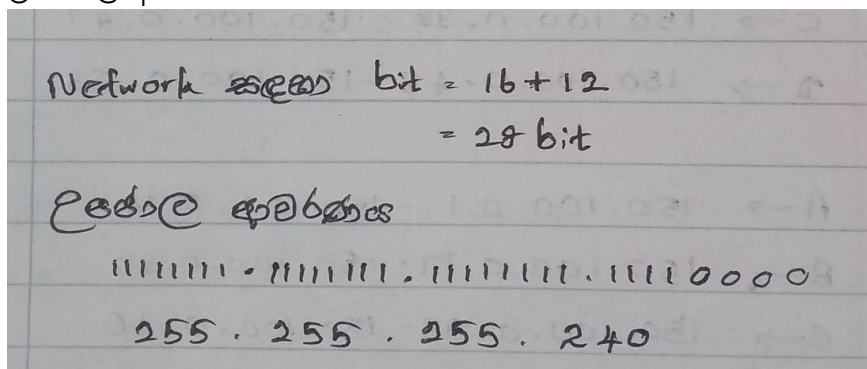 Network සඳහා bit = 16 + 12
= 28 bit
උපජාල ආවරණය
11111111 . 11111111 . 11111111 . 11110000
255 . 255 . 255 . 240